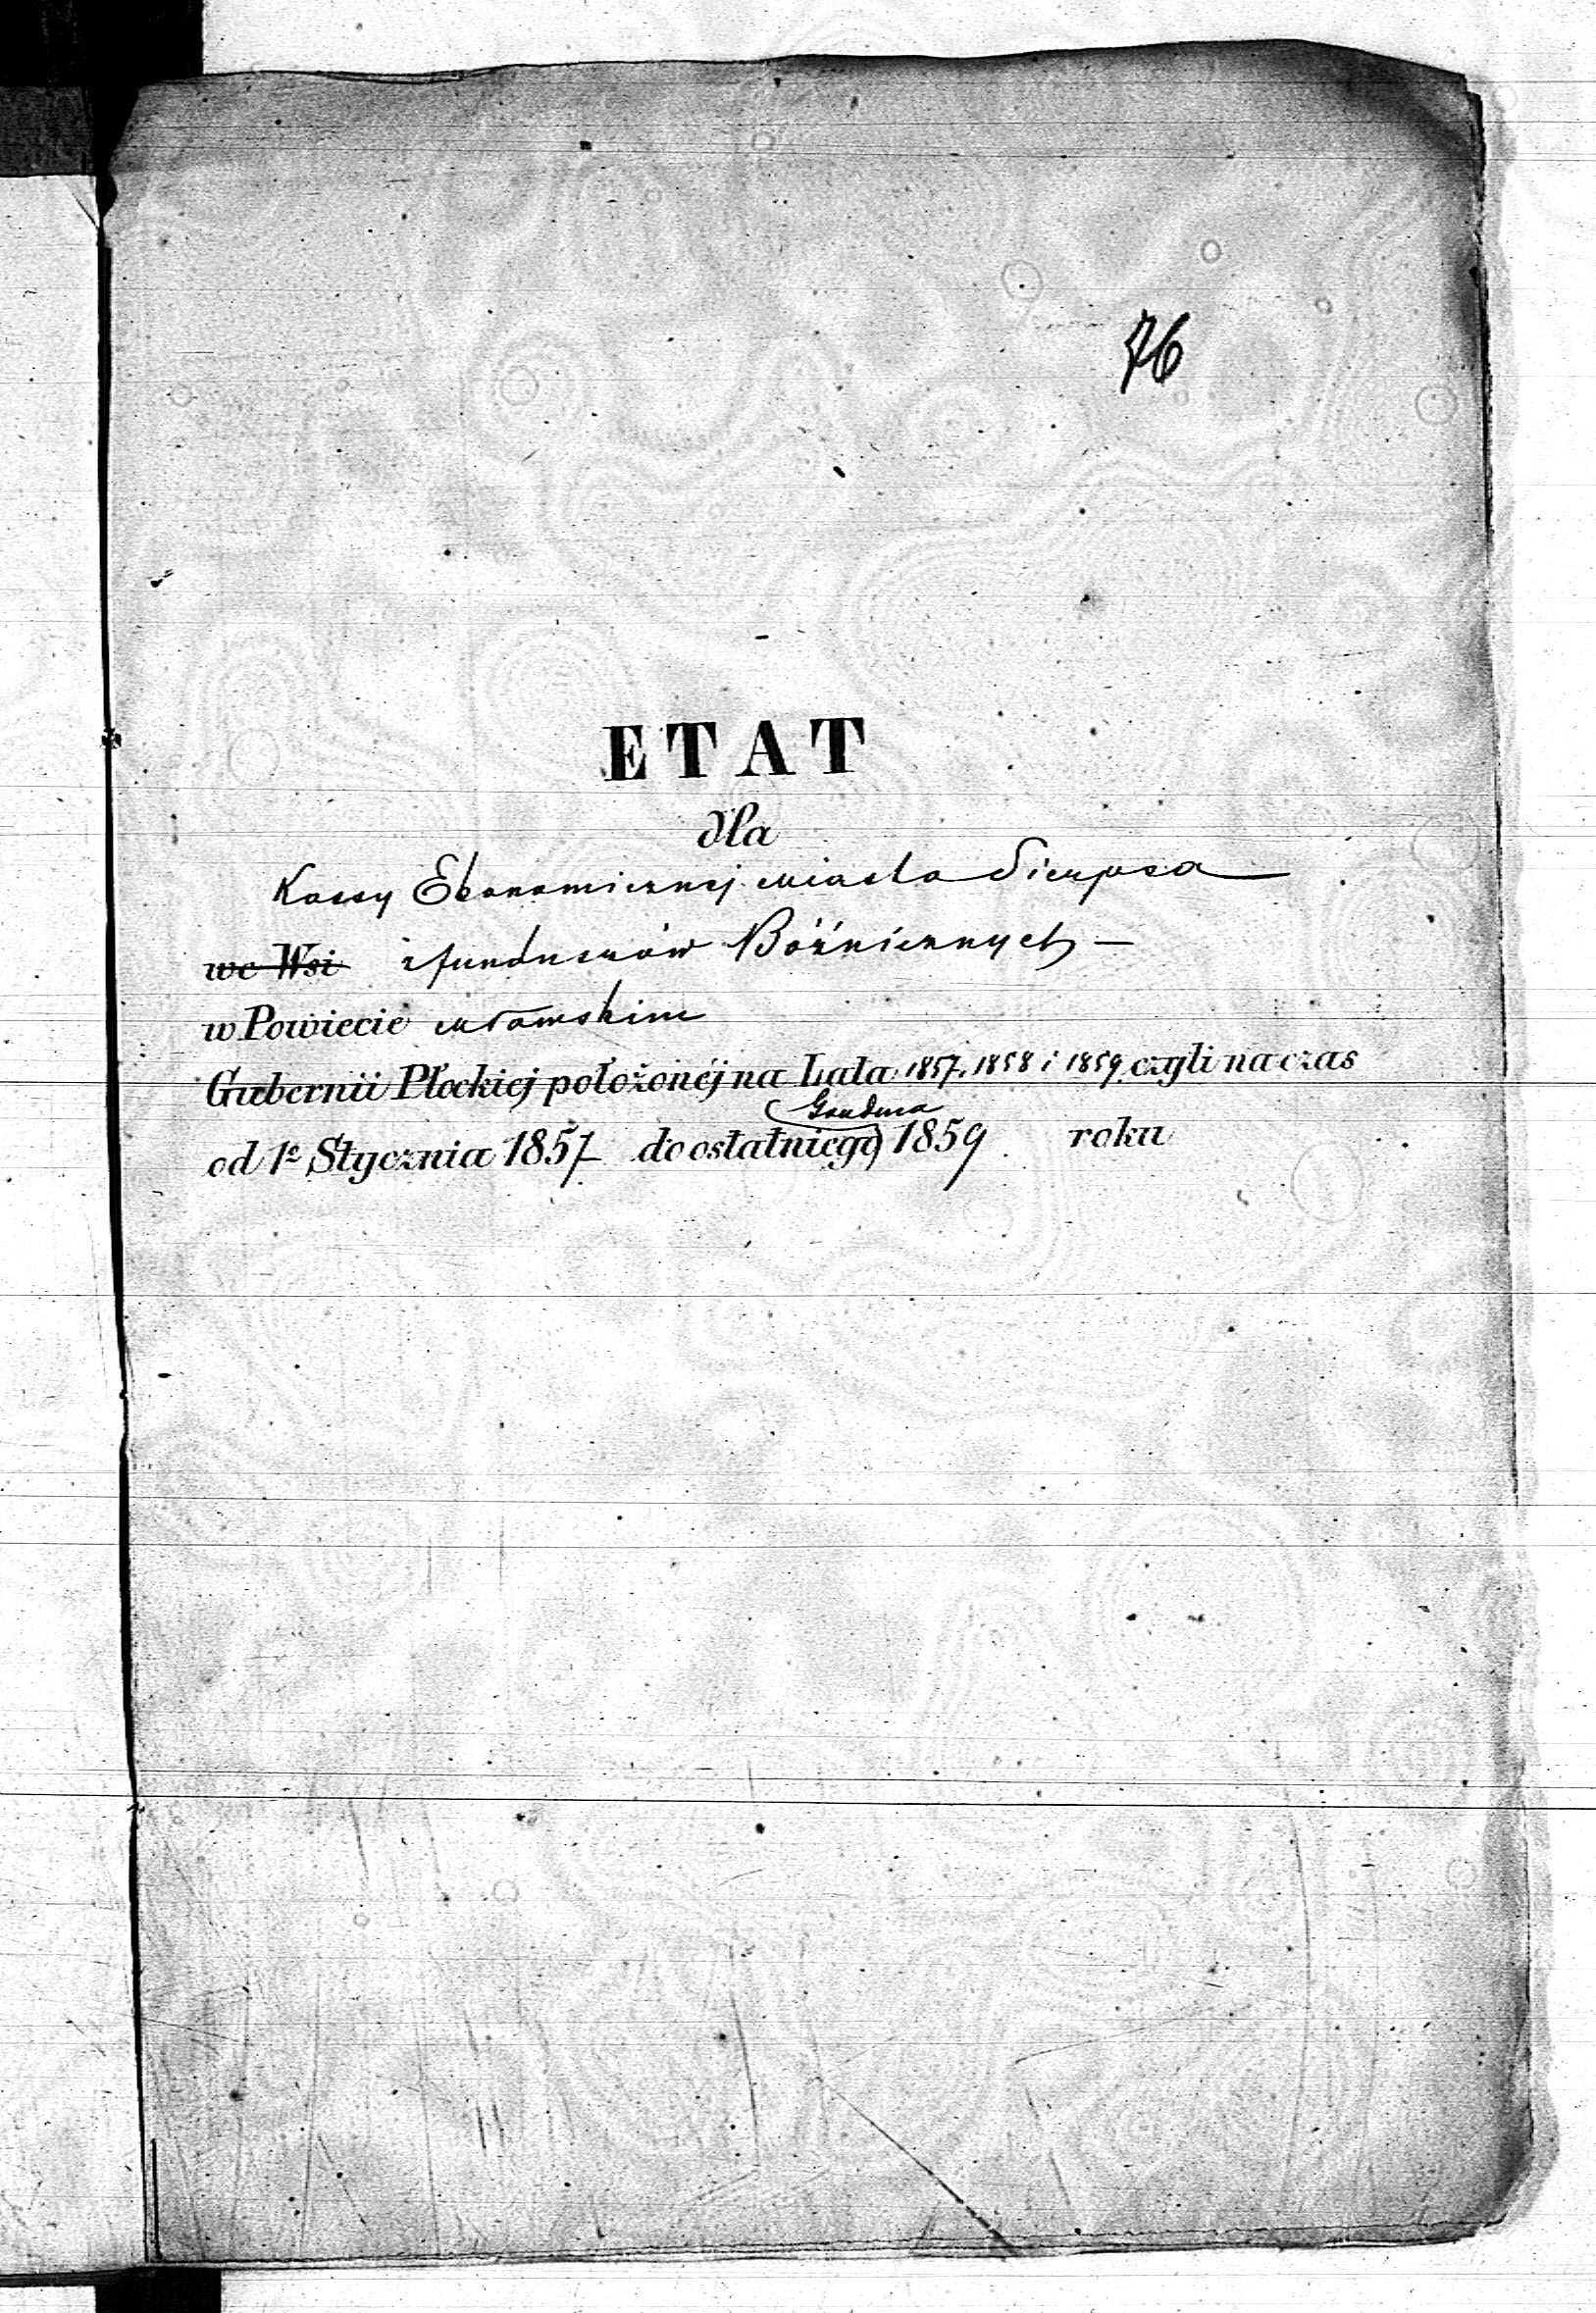 76
ETAT
dla
Kassy Ekonomicznej miasta Sierpca
we Wsi z funduszów Bóżnicznych —
w Powiecie Mławskim
Gubernii Płockiej położonéj na Lata 1857. 1858 i 1859 czyli na czas
Grudnia
od 1º Stycznia 1857 do ostatniego 1859 roku